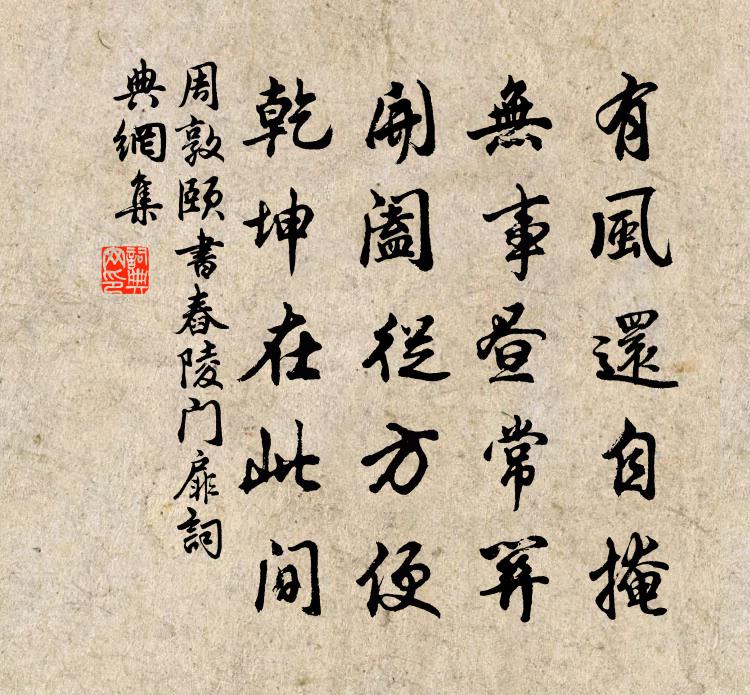 有風還自掩
無事晝常關
開闔從方便
乾坤在此間
周敦頤書舂陵門扉詞
典網集
詞典網印